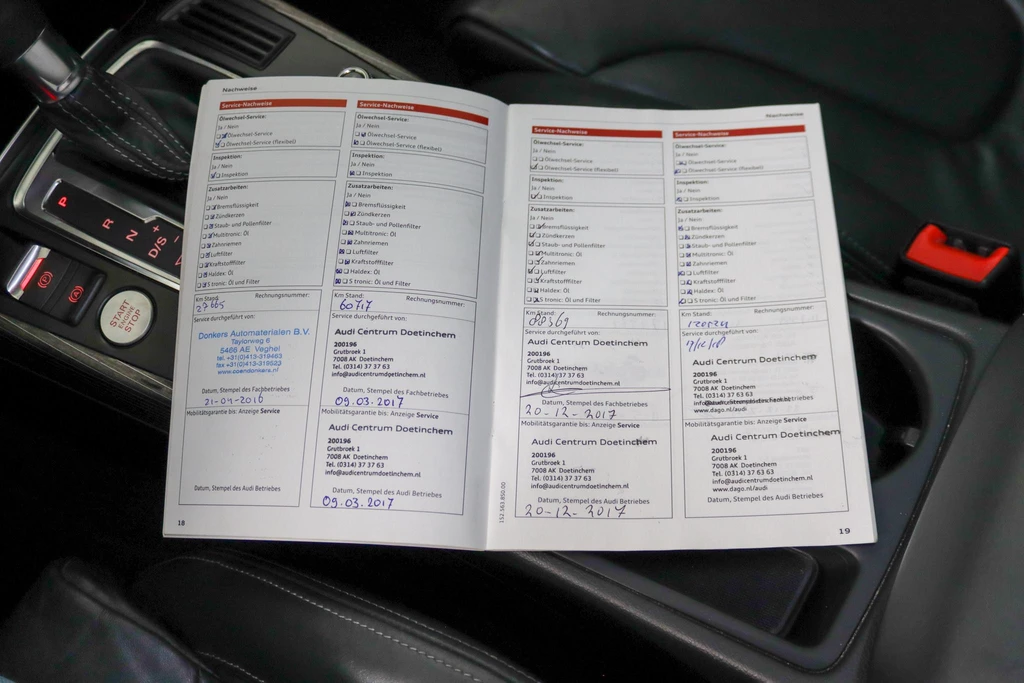 P
R
N
D/S
+
−
START
ENGINE
STOP
Nachweise
Service-Nachweise
Ölwechsel-Service:
Ja / Nein
Ölwechsel-Service
Ölwechsel-Service (flexibel)
Inspektion:
Ja / Nein
Inspektion
Zusatzarbeiten:
Ja / Nein
Bremsflüssigkeit
Zündkerzen
Staub- und Pollenfilter
Multitronic: Öl
Zahnriemen
Luftfilter
Kraftstofffilter
Haldex: Öl
S tronic: Öl und Filter
Km Stand: Rechnungsnummer:
27665
Service durchgeführt von:
Donkers Automaterialen B.V.
Taylorweg 6
5466 AE Veghel
tel. +31(0)413-319463
fax +31(0)413-319523
www.coendonkers.nl
Datum, Stempel des Fachbetriebes
Mobilitätsgarantie bis: Anzeige Service
Datum, Stempel des Audi Betriebes
18
Service-Nachweise
Ölwechsel-Service:
Ja / Nein
Ölwechsel-Service
Ölwechsel-Service (flexibel)
Inspektion:
Ja / Nein
Inspektion
Zusatzarbeiten:
Ja / Nein
Bremsflüssigkeit
Zündkerzen
Staub- und Pollenfilter
Multitronic: Öl
Zahnriemen
Luftfilter
Kraftstofffilter
Haldex: Öl
S tronic: Öl und Filter
Km Stand: Rechnungsnummer:
60717
Service durchgeführt von:
Audi Centrum Doetinchem
200196
Grutbroek 1
7008 AK Doetinchem
Tel. (0314) 37 37 63
info@audicentrumdoetinchem.nl
Datum, Stempel des Fachbetriebes
09.03.2017
Mobilitätsgarantie bis: Anzeige Service
Audi Centrum Doetinchem
200196
Grutbroek 1
7008 AK Doetinchem
Tel. (0314) 37 37 63
info@audicentrumdoetinchem.nl
Datum, Stempel des Audi Betriebes
09.03.2017
152.563.850.00
Service-Nachweise
Ölwechsel-Service:
Ja / Nein
Ölwechsel-Service
Ölwechsel-Service (flexibel)
Inspektion:
Ja / Nein
Inspektion
Zusatzarbeiten:
Ja / Nein
Bremsflüssigkeit
Zündkerzen
Staub- und Pollenfilter
Multitronic: Öl
Zahnriemen
Luftfilter
Kraftstofffilter
Haldex: Öl
S tronic: Öl und Filter
Km Stand: Rechnungsnummer:
88369
Service durchgeführt von:
Audi Centrum Doetinchem
200196
Grutbroek 1
7008 AK Doetinchem
Tel. (0314) 37 37 63
info@audicentrumdoetinchem.nl
Datum, Stempel des Fachbetriebes
20-12-2017
Mobilitätsgarantie bis: Anzeige Service
Audi Centrum Doetinchem
200196
Grutbroek 1
7008 AK Doetinchem
Tel. (0314) 37 37 63
info@audicentrumdoetinchem.nl
Datum, Stempel des Audi Betriebes
20-12-2017
Nachweise
Service-Nachweise
Ölwechsel-Service:
Ja / Nein
Ölwechsel-Service
Ölwechsel-Service (flexibel)
Inspektion:
Ja / Nein
Inspektion
Zusatzarbeiten:
Ja / Nein
Bremsflüssigkeit
Zündkerzen
Staub- und Pollenfilter
Multitronic: Öl
Zahnriemen
Luftfilter
Kraftstofffilter
Haldex: Öl
S tronic: Öl und Filter
Km Stand: Rechnungsnummer:
Service durchgeführt von:
Audi Centrum Doetinchem
200196
Grutbroek 1
7008 AK Doetinchem
Tel. (0314) 37 63 63
www.dago.nl/audi
Mobilitätsgarantie bis: Anzeige Service
Audi Centrum Doetinchem
200196
Grutbroek 1
7008 AK Doetinchem
Tel. (0314) 37 63 63
info@audicentrumdoetinchem.nl
www.dago.nl/audi
Datum, Stempel des Audi Betriebes
19